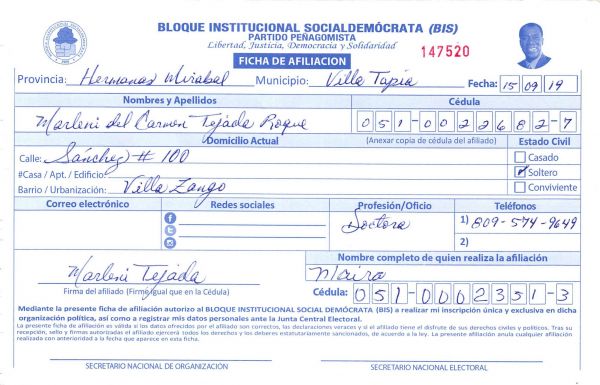 BLOQUE INSTITUCIONAL SOCIALDEMÓCRATA (BIS)
PARTIDO PEÑAGOMISTA
Libertad, Justicia, Democracia y Solidaridad
FICHA DE AFILIACION
147520
Provincia: Hermanas Mirabal Municipio: Villa Tapia Fecha: 15 09 19
Nombres y Apellidos Cédula
Marleni del Carmen Tejada Roque 051-0022682-7
Domicilio Actual (Anexar copia de cédula del afiliado) Estado Civil
Calle: Sánchez # 100 Casado
#Casa / Apt. / Edificio: Soltero
Barrio / Urbanización: Villa Zango Conviviente
Correo electrónico Redes sociales Profesión/Oficio Teléfonos
Doctora 1) 809-574-9649
2)
Nombre completo de quien realiza la afiliación
Marleni Tejada Maira
Firma del afiliado (Firme igual que en la Cédula) Cédula: 051-0002351-3
Mediante la presente ficha de afiliación autorizo al BLOQUE INSTITUCIONAL SOCIAL DEMÓCRATA (BIS) a realizar mi inscripción única y exclusiva en dicha
organización política, así como a registrar mis datos personales ante la Junta Central Electoral.
La presente ficha de afiliación es válida si los datos ofrecidos por el afiliado son correctos, las declaraciones veraces y si el afiliado tiene el disfrute de sus derechos civiles y políticos. Tras su
recepción, sello y firmas autorizadas el afiliado ejercerá todos los derechos y los deberes estatutariamente sancionados, de acuerdo a la ley. La presente afiliación anula cualquier afiliación
realizada con anterioridad a la fecha que aparece en esta ficha.
SECRETARIO NACIONAL DE ORGANIZACIÓN SECRETARIO NACIONAL ELECTORAL